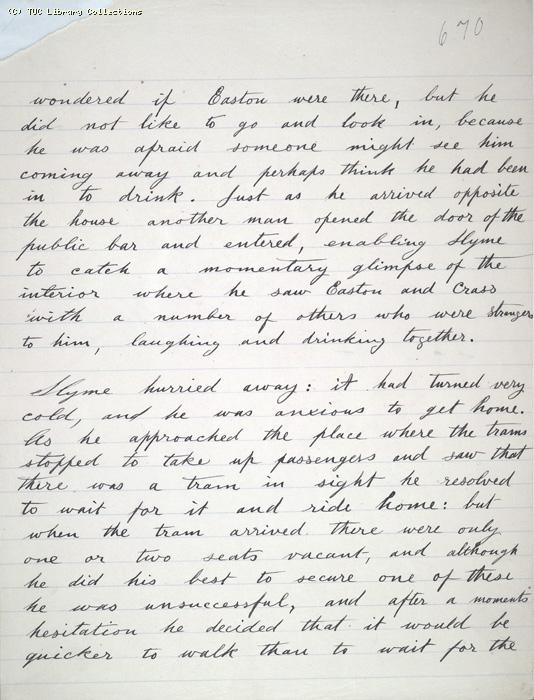 (C) TUC Library Collections
670
wondered if Easton were there, but he
did not like to go and look in, because
he was afraid someone might see him
coming away and perhaps think he had been
in to drink. Just as he arrived opposite
the house another man opened the door of the
public bar and entered, enabling Slyme
to catch a momentary glimpse of the
interior where he saw Easton and Crass
with a number of others who were strangers
to him, laughing and drinking together.
Slyme hurried away: it had turned very
cold, and he was anxious to get home.
As he approached the place where the trams
stopped to take up passengers and saw that
there was a tram in sight he resolved
to wait for it and ride home: but
when the tram arrived there were only
one or two seats vacant, and although
he did his best to secure one of these
he was unsuccessful, and after a moments
hesitation he decided that it would be
quicker to walk than to wait for the